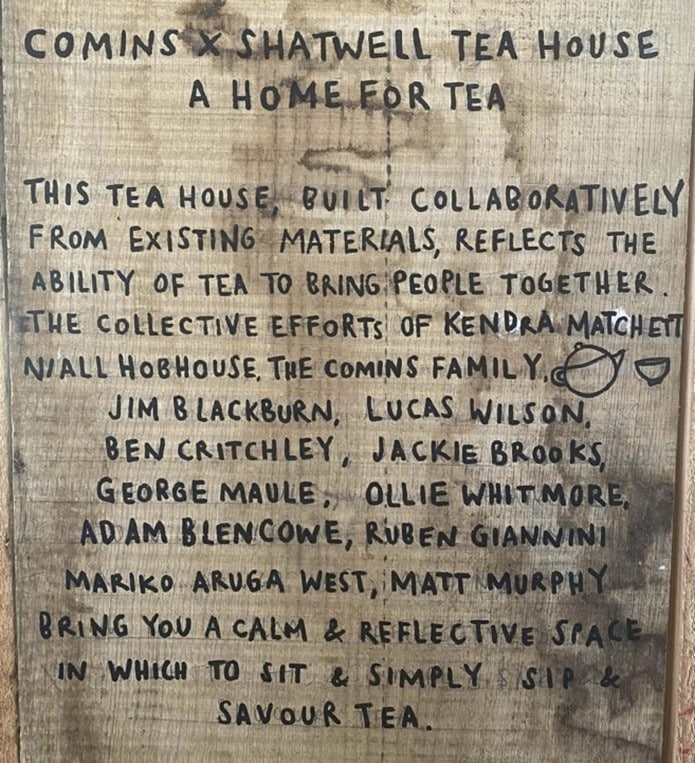 COMINS X SHATWELL TEA HOUSE
A HOME FOR TEA
THIS TEA HOUSE, BUILT COLLABORATIVELY
FROM EXISTING MATERIALS, REFLECTS THE
ABILITY OF TEA TO BRING PEOPLE TOGETHER.
THE COLLECTIVE EFFORTS OF KENDRA MATCHETT
NIALL HOBHOUSE, THE COMINS FAMILY,
JIM BLACKBURN, LUCAS WILSON,
BEN CRITCHLEY, JACKIE BROOKS,
GEORGE MAULE, OLLIE WHITMORE,
ADAM BLENCOWE, RUBEN GIANNINI
MARIKO ARUGA WEST, MATT MURPHY
BRING YOU A CALM & REFLECTIVE SPACE
IN WHICH TO SIT & SIMPLY SIP &
SAVOUR TEA.